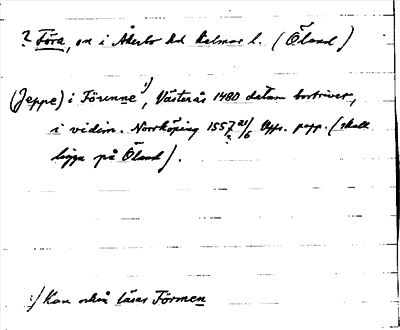 ? Föra, sn i Åkerbo hd Kalmar l. (Öland)
(Jeppe) i Förenne 1), Västerås 1480 datum bortrivet,
i vidim. Norrköping 1557 21/6 Upps. papp. (skall
ligga på Öland).
1) Kan också läsas Förmen